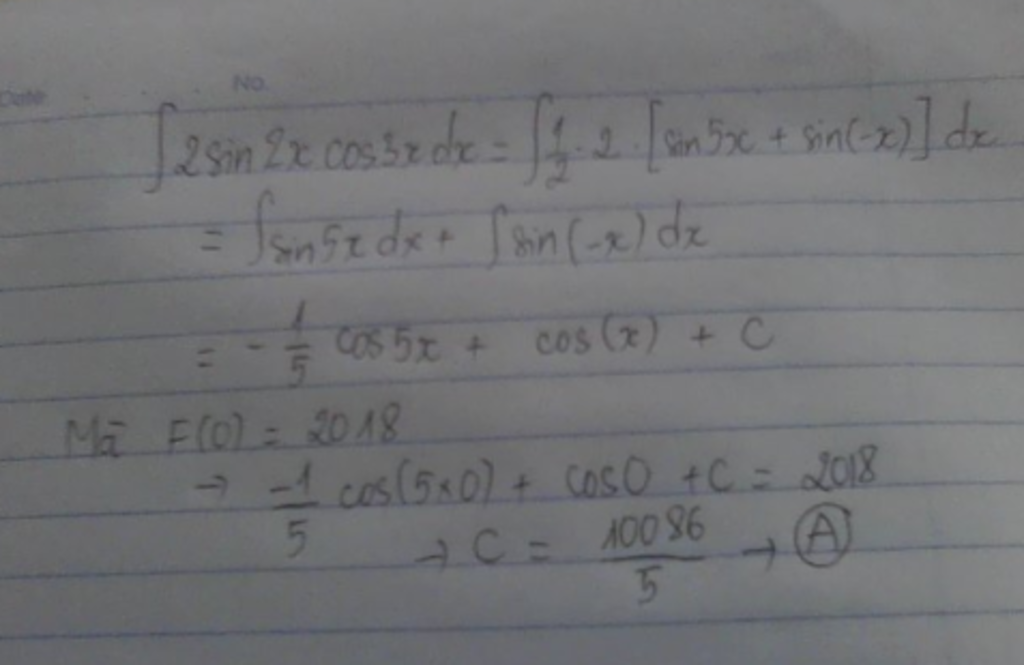 Date No.
∫2sin2x cos3x dx = ∫1/2 . 2 . [sin5x + sin(-x)] dx
= ∫sin5x dx + ∫sin(-x) dx
= - 1/5 cos5x + cos(x) + C
Mà F(0) = 2018
→ -1/5 cos(5×0) + cos0 + C = 2018
→ C = 10086/5 → A